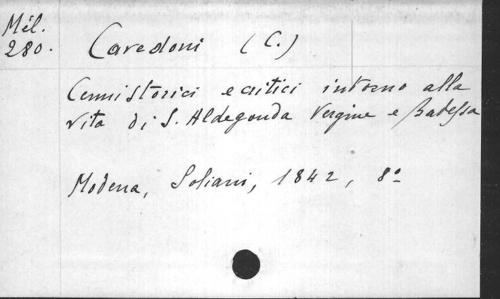 Mél.
280.
Caredoni (C.)
Cenni storici e critici intorno alla
vita di S. Aldegonda Vergine e Badessa
Modena, Soliani, 1842, 8º